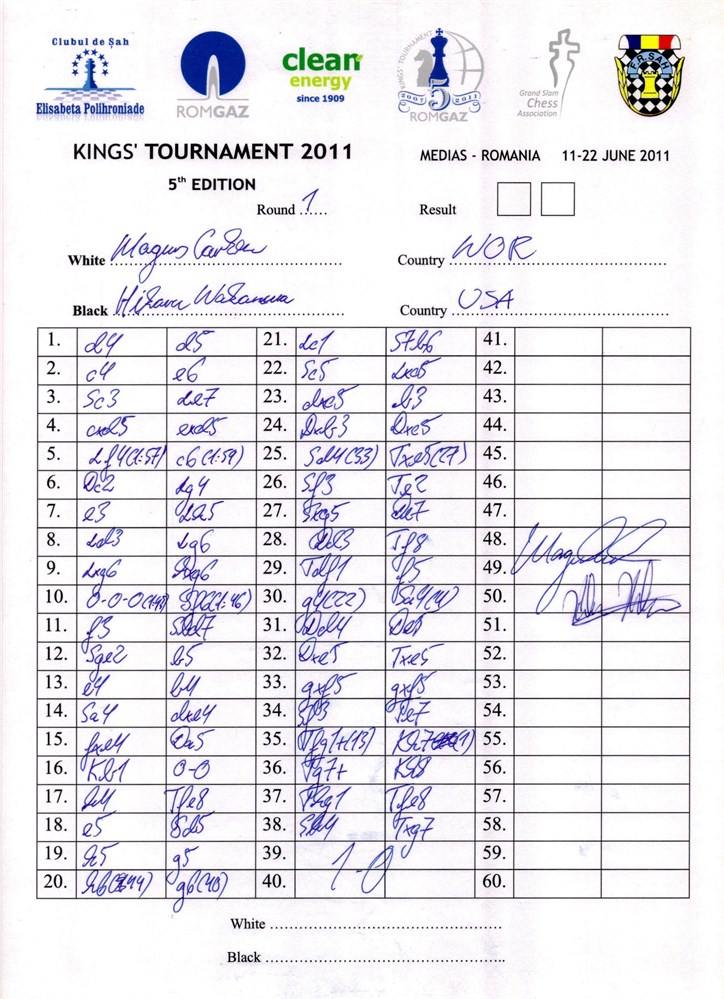 Clubul de Șah
Elisabeta Polihroniade
ROMGAZ
clean
energy
since 1909
KINGS' TOURNAMENT
2007 5 2011
ROMGAZ
Grand Slam
Chess
Association
F.R.SAH
KINGS' TOURNAMENT 2011
MEDIAS - ROMANIA 11-22 JUNE 2011
5th EDITION
Round 1
Result
White Magnus Carlsen Country NOR
Black Hikaru Nakamura Country USA
1. d4 d5 21. Lc1 S7b6 41.
2. c4 e6 22. Sc5 Lxc5 42.
3. Sc3 Le7 23. dxc5 b3 43.
4. cxd5 exd5 24. Dxb3 Dxc5 44.
5. Lf4(1:57) c6(1:59) 25. Sd4(33) Txe5(27) 45.
6. Dc2 Lg4 26. Sf3 Te2 46.
7. e3 Lh5 27. Sxg5 De7 47.
8. Ld3 Lg6 28. Dd3 Tf8 48.
9. Lxg6 hxg6 29. Tdf1 f5 49.
10. 0-0-0 Sf6(1:46) 30. g4(22) 50.
11. f3 Sbd7 31. Dd4 51.
12. Sge2 b5 32. Dxe5 Txe5 52.
13. e4 b4 33. gxf5 gxf5 53.
14. Sa4 dxe4 34. Sf3 Te7 54.
15. fxe4 Da5 35. 55.
16. Kb1 0-0 36. Tg7+ Kh8 56.
17. h4 Tfe8 37. Thg1 Tfe8 57.
18. e5 Sd5 38. Sh4 Txg7 58.
19. h5 g5 39. 1-0 59.
20. h6 g6(40) 40. 60.
White
Black